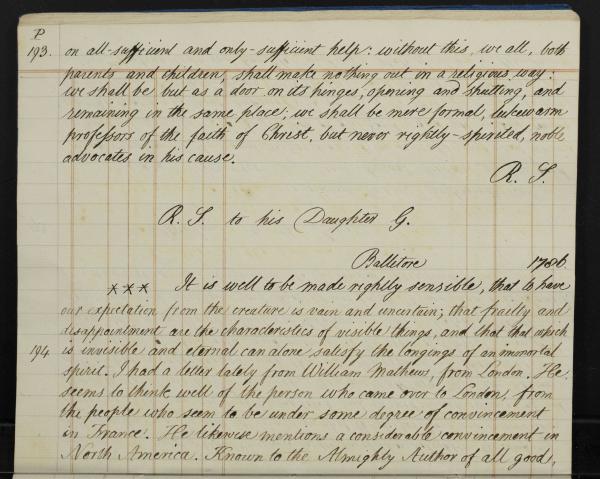 P
193. on all-sufficient and only-sufficient help: without this, we all, both
parents and children, shall make nothing out in a religious way:
we shall be but as a door on its hinges, opening and shutting, and
remaining in the same place; we shall be mere formal, lukewarm
professors of the faith of Christ, but never rightly-spirited, noble
advocates in his cause.
R. S.
R. S. to his Daughter G.
Ballitore 1786.
*** It is well to be made rightly sensible, that to have
our expectation from the creature is vain and uncertain; that frailty and
disappointment are the characteristics of visible things, and that that which
194 is invisible and eternal can alone satisfy the longings of an immortal
spirit. I had a letter lately from William Mathews, from London. He
seems to think well of the person who came over to London, from
the people who seem to be under some degree of convincement
in France. He likewise mentions a considerable convincement in
North America. Known to the Almighty Author of all good,